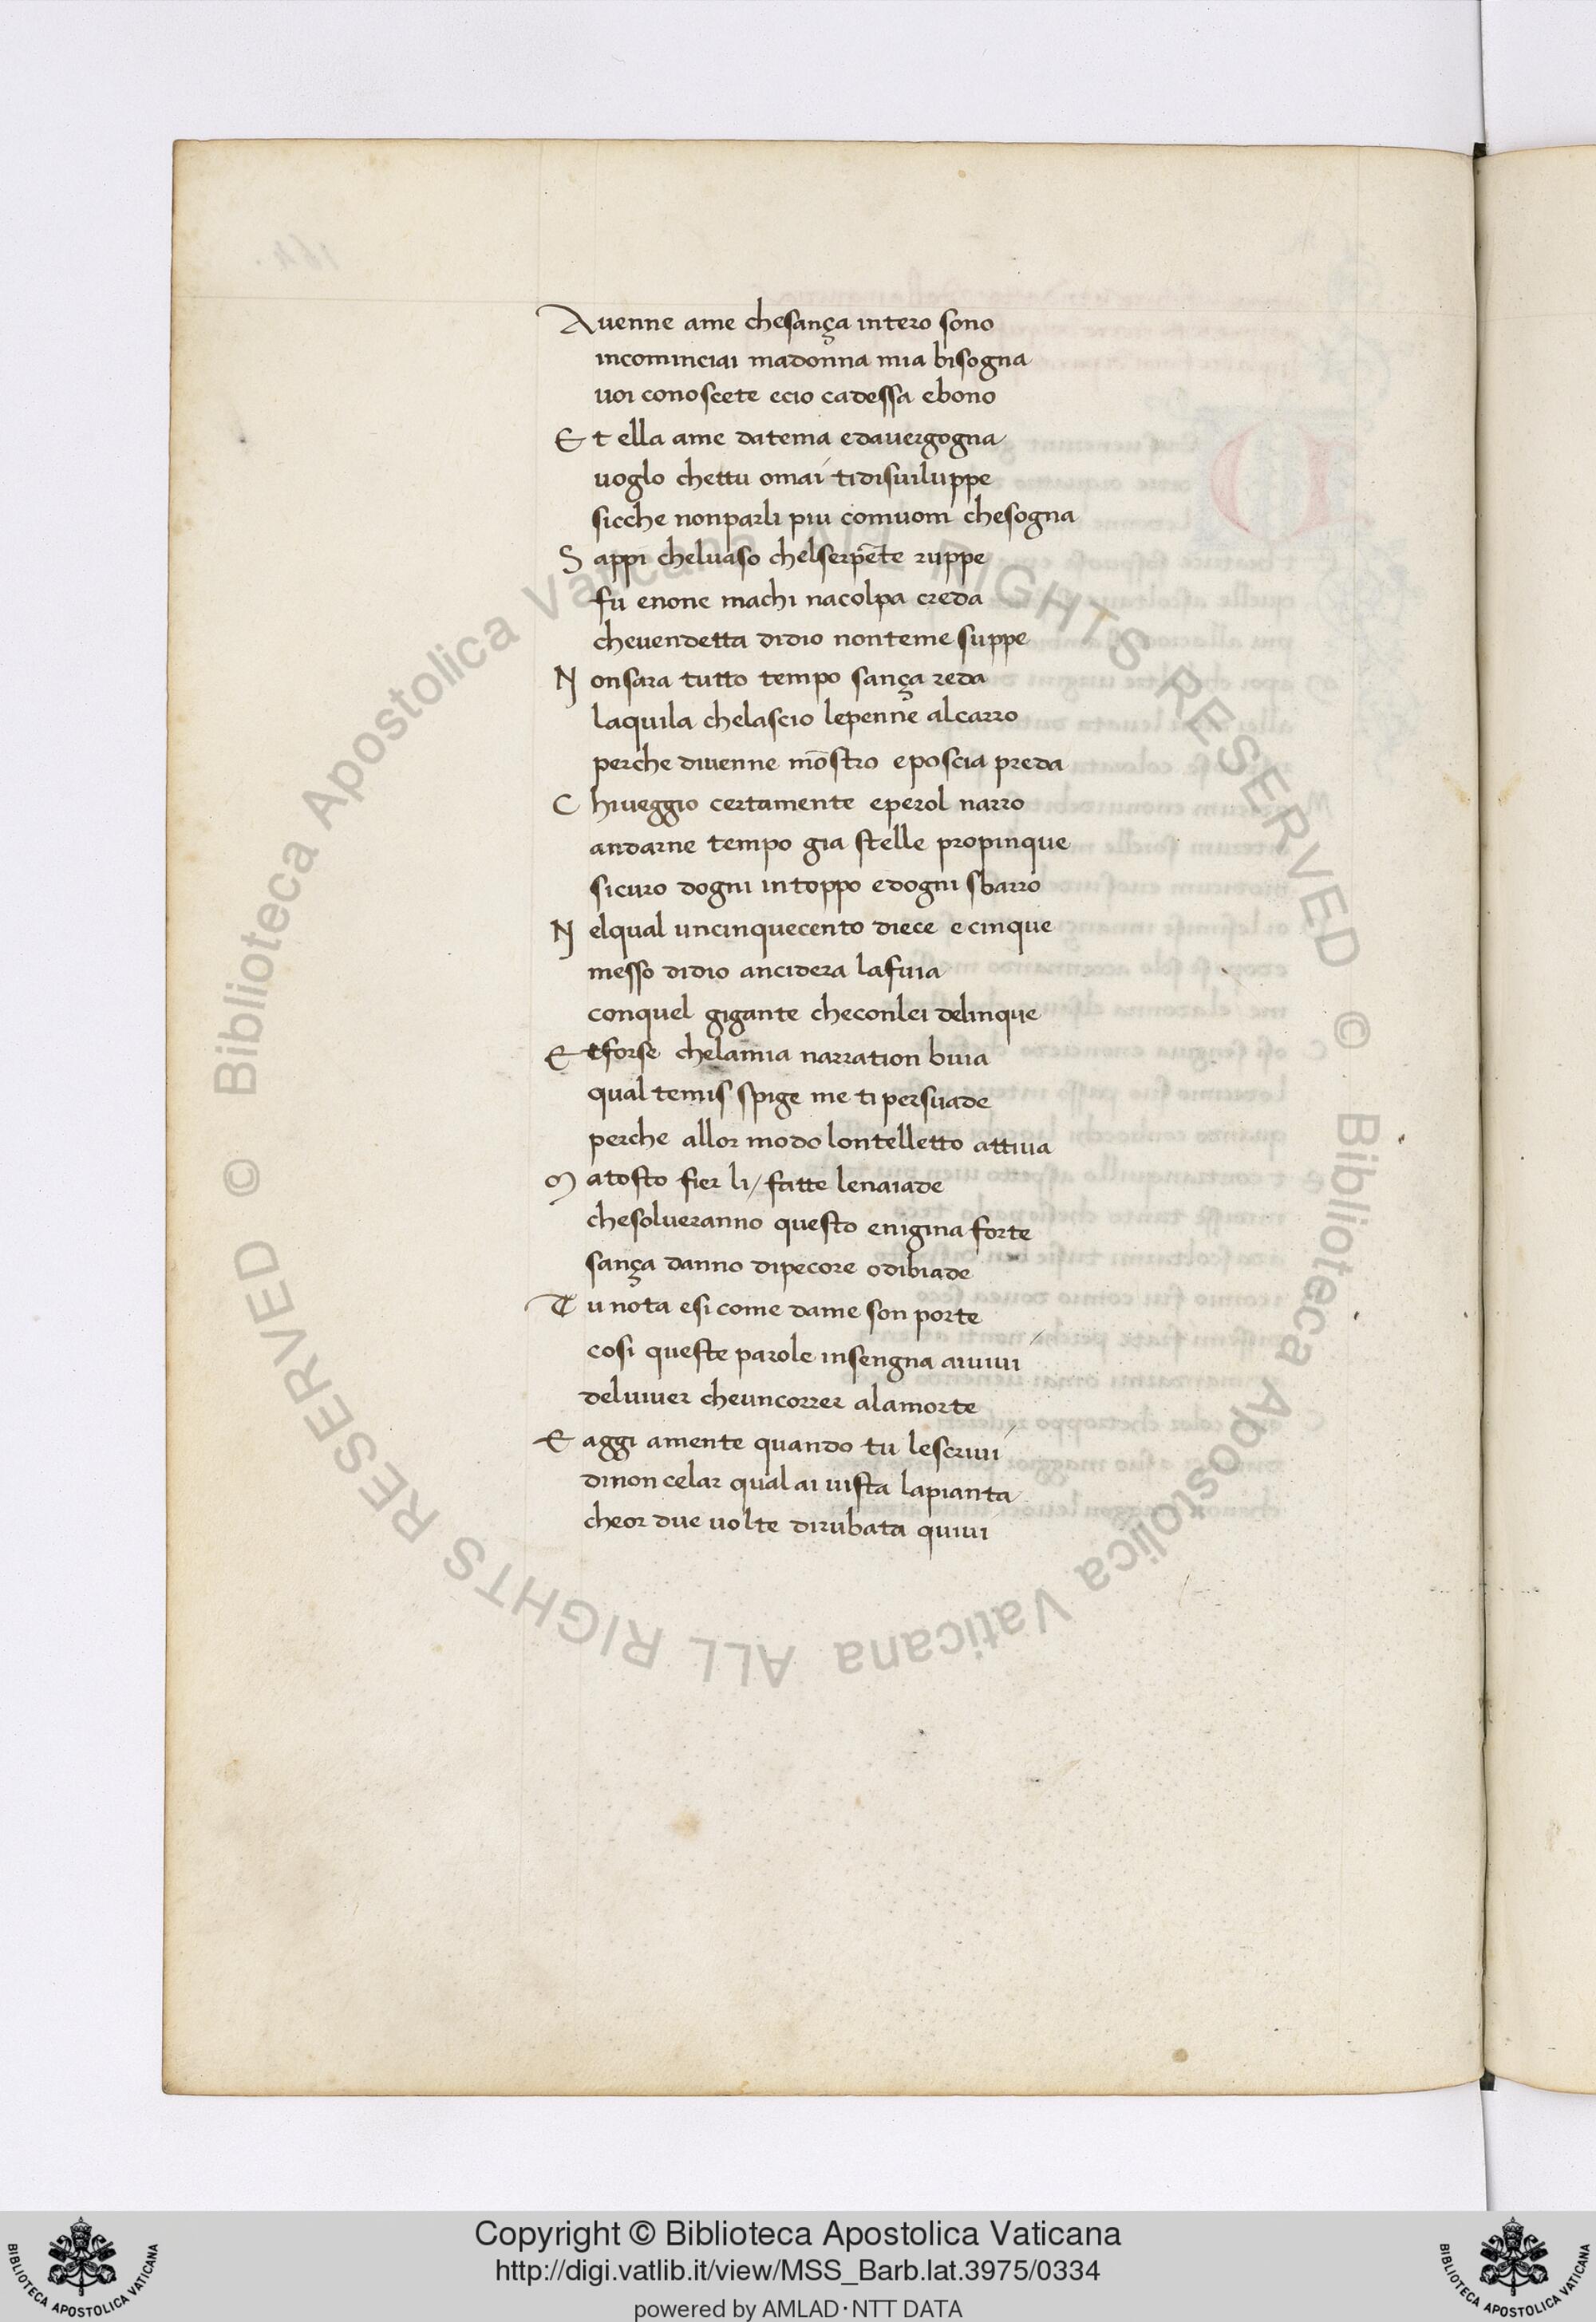 Auenne ame chesança intero sono
incominciai madonna mia bisogna
uoi conoscete ecio cadessa ebono
Et ella ame datema edauergogna
uoglo chettu omai tidisuiluppe
sicche nonparli piu comuom chesogna
Sappi cheluaso chelserpēte ruppe
fu enone machi nacolpa creda
cheuendetta didio nonteme suppe
Nonsara tutto tempo sança reda
laquila chelascio lepenne alcarro
perche diuenne mōstro eposcia preda
Chiueggio certamente eperol narro
andarne tempo gia stelle propinque
sicuro dogni intoppo edogni sbarro
Nelqual uncinquecento diece e cinque
messo didio anciderà lafuia
conquel gigante checonlei delinque
Et forse chelamia narration buia
qual temis spige me ti persuade
perche allor modo lontelletto attuia
Matosto fier li / fatte lenaiade
chesolueranno questo enigma forte
sança danno dipecore odibiade
Tu nota esi come dame son porte
cosi queste parole insengna aiuiui
deluiuer cheuncorrer alamorte
E aggi amente quando tu lescriui
dinon celar qual ai uista lapianta
cheor due uolte dirubata quiui
Copyright © Biblioteca Apostolica Vaticana
http://digi.vatlib.it/view/MSS_Barb.lat.3975/0334
powered by AMLAD·NTT DATA
© Biblioteca Apostolica Vaticana ALL RIGHTS RESERVED © Biblioteca Apostolica Vaticana ALL RIGHTS RESERVED
BIBLIOTECA APOSTOLICA VATICANA
BIBLIOTECA APOSTOLICA VATICANA